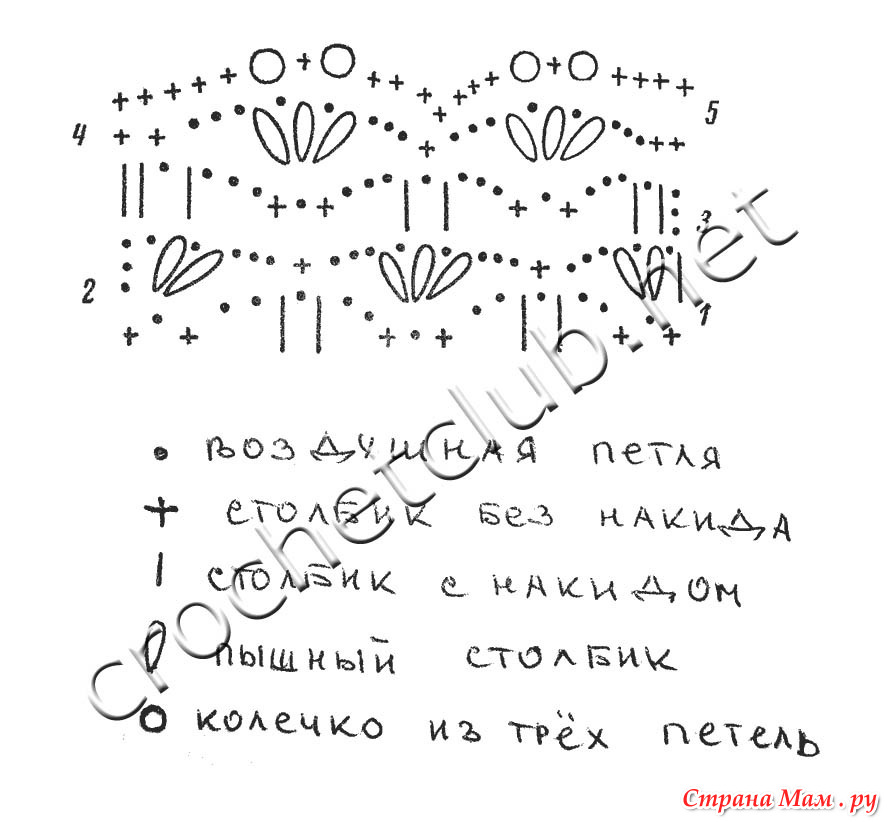 4
5
3
2
1
воздушная петля
столбик без накида
столбик с накидом
пышный столбик
колечко из трёх петель
crochetclub.net
Страна Мам.ру